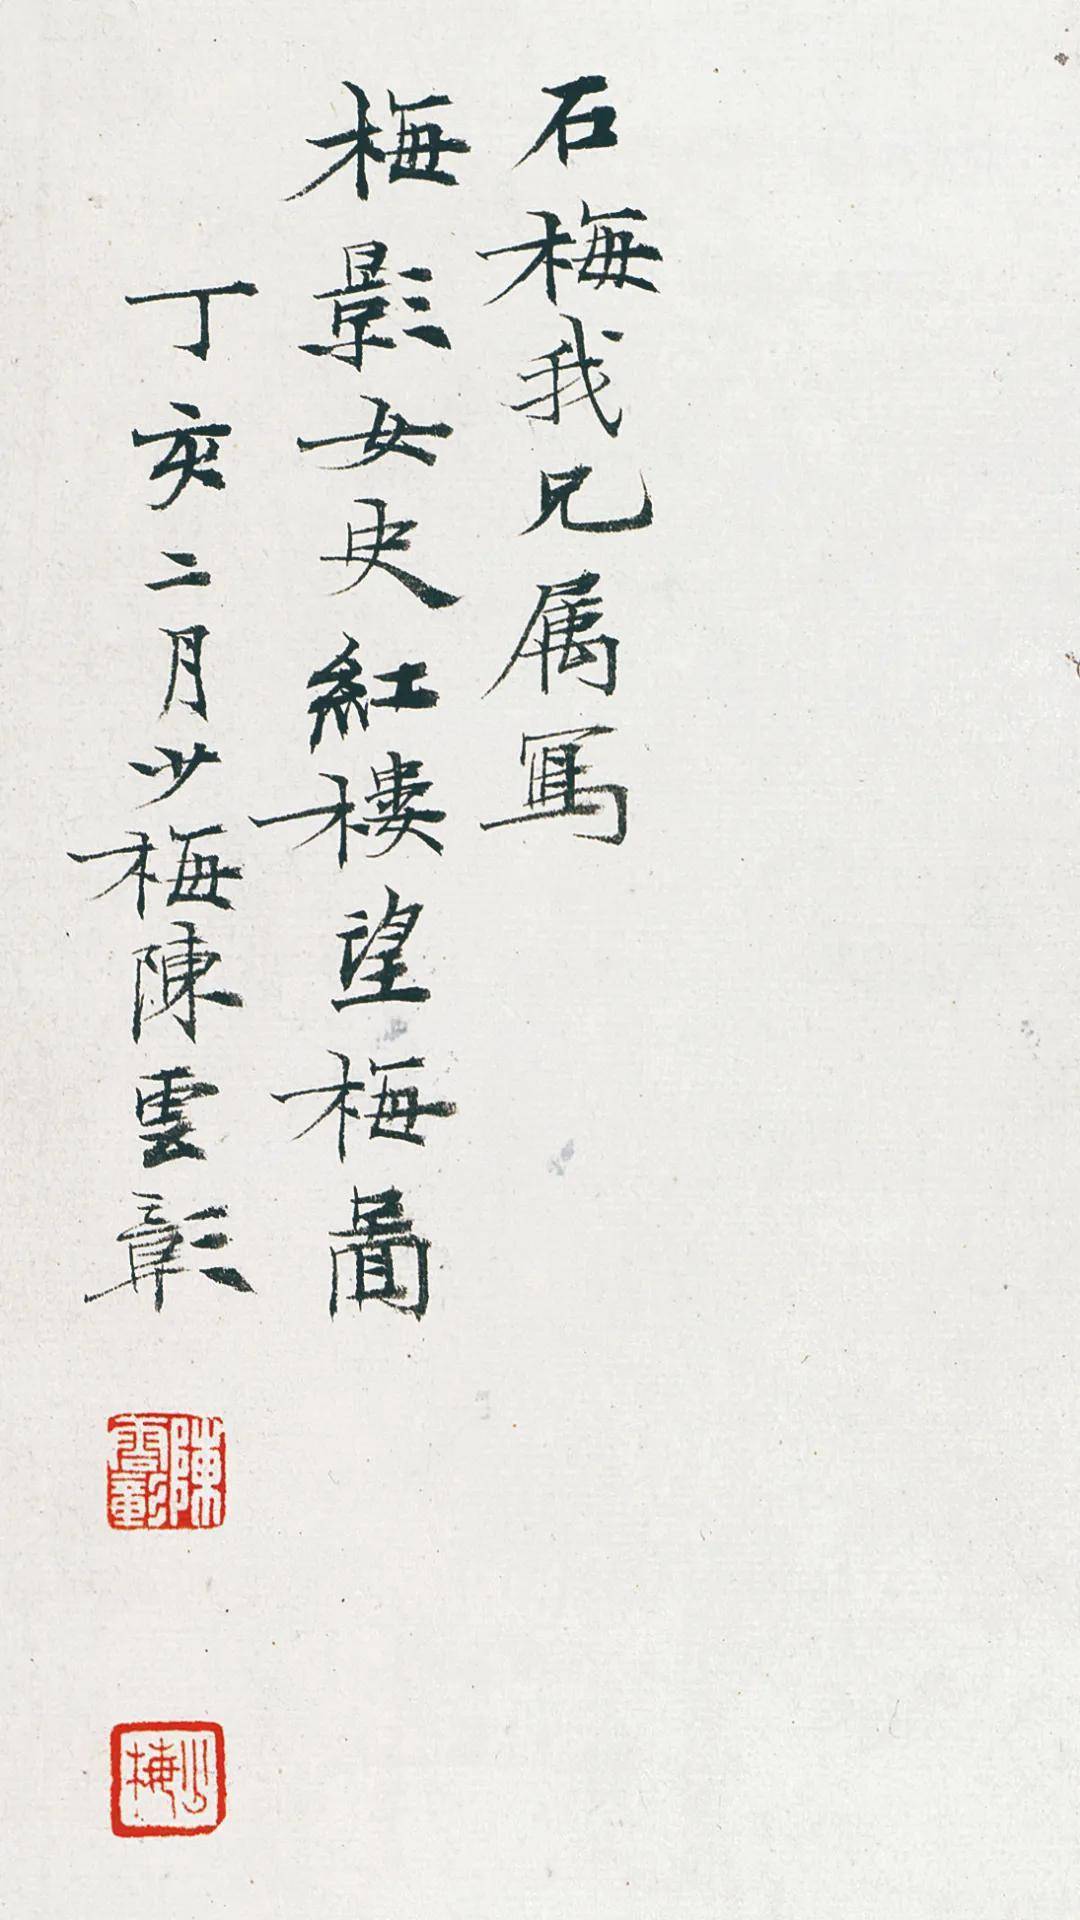 石梅我兄属寫
梅影女史紅樓望梅啚
丁亥二月少梅陳雲彰
陳雲彰
少梅